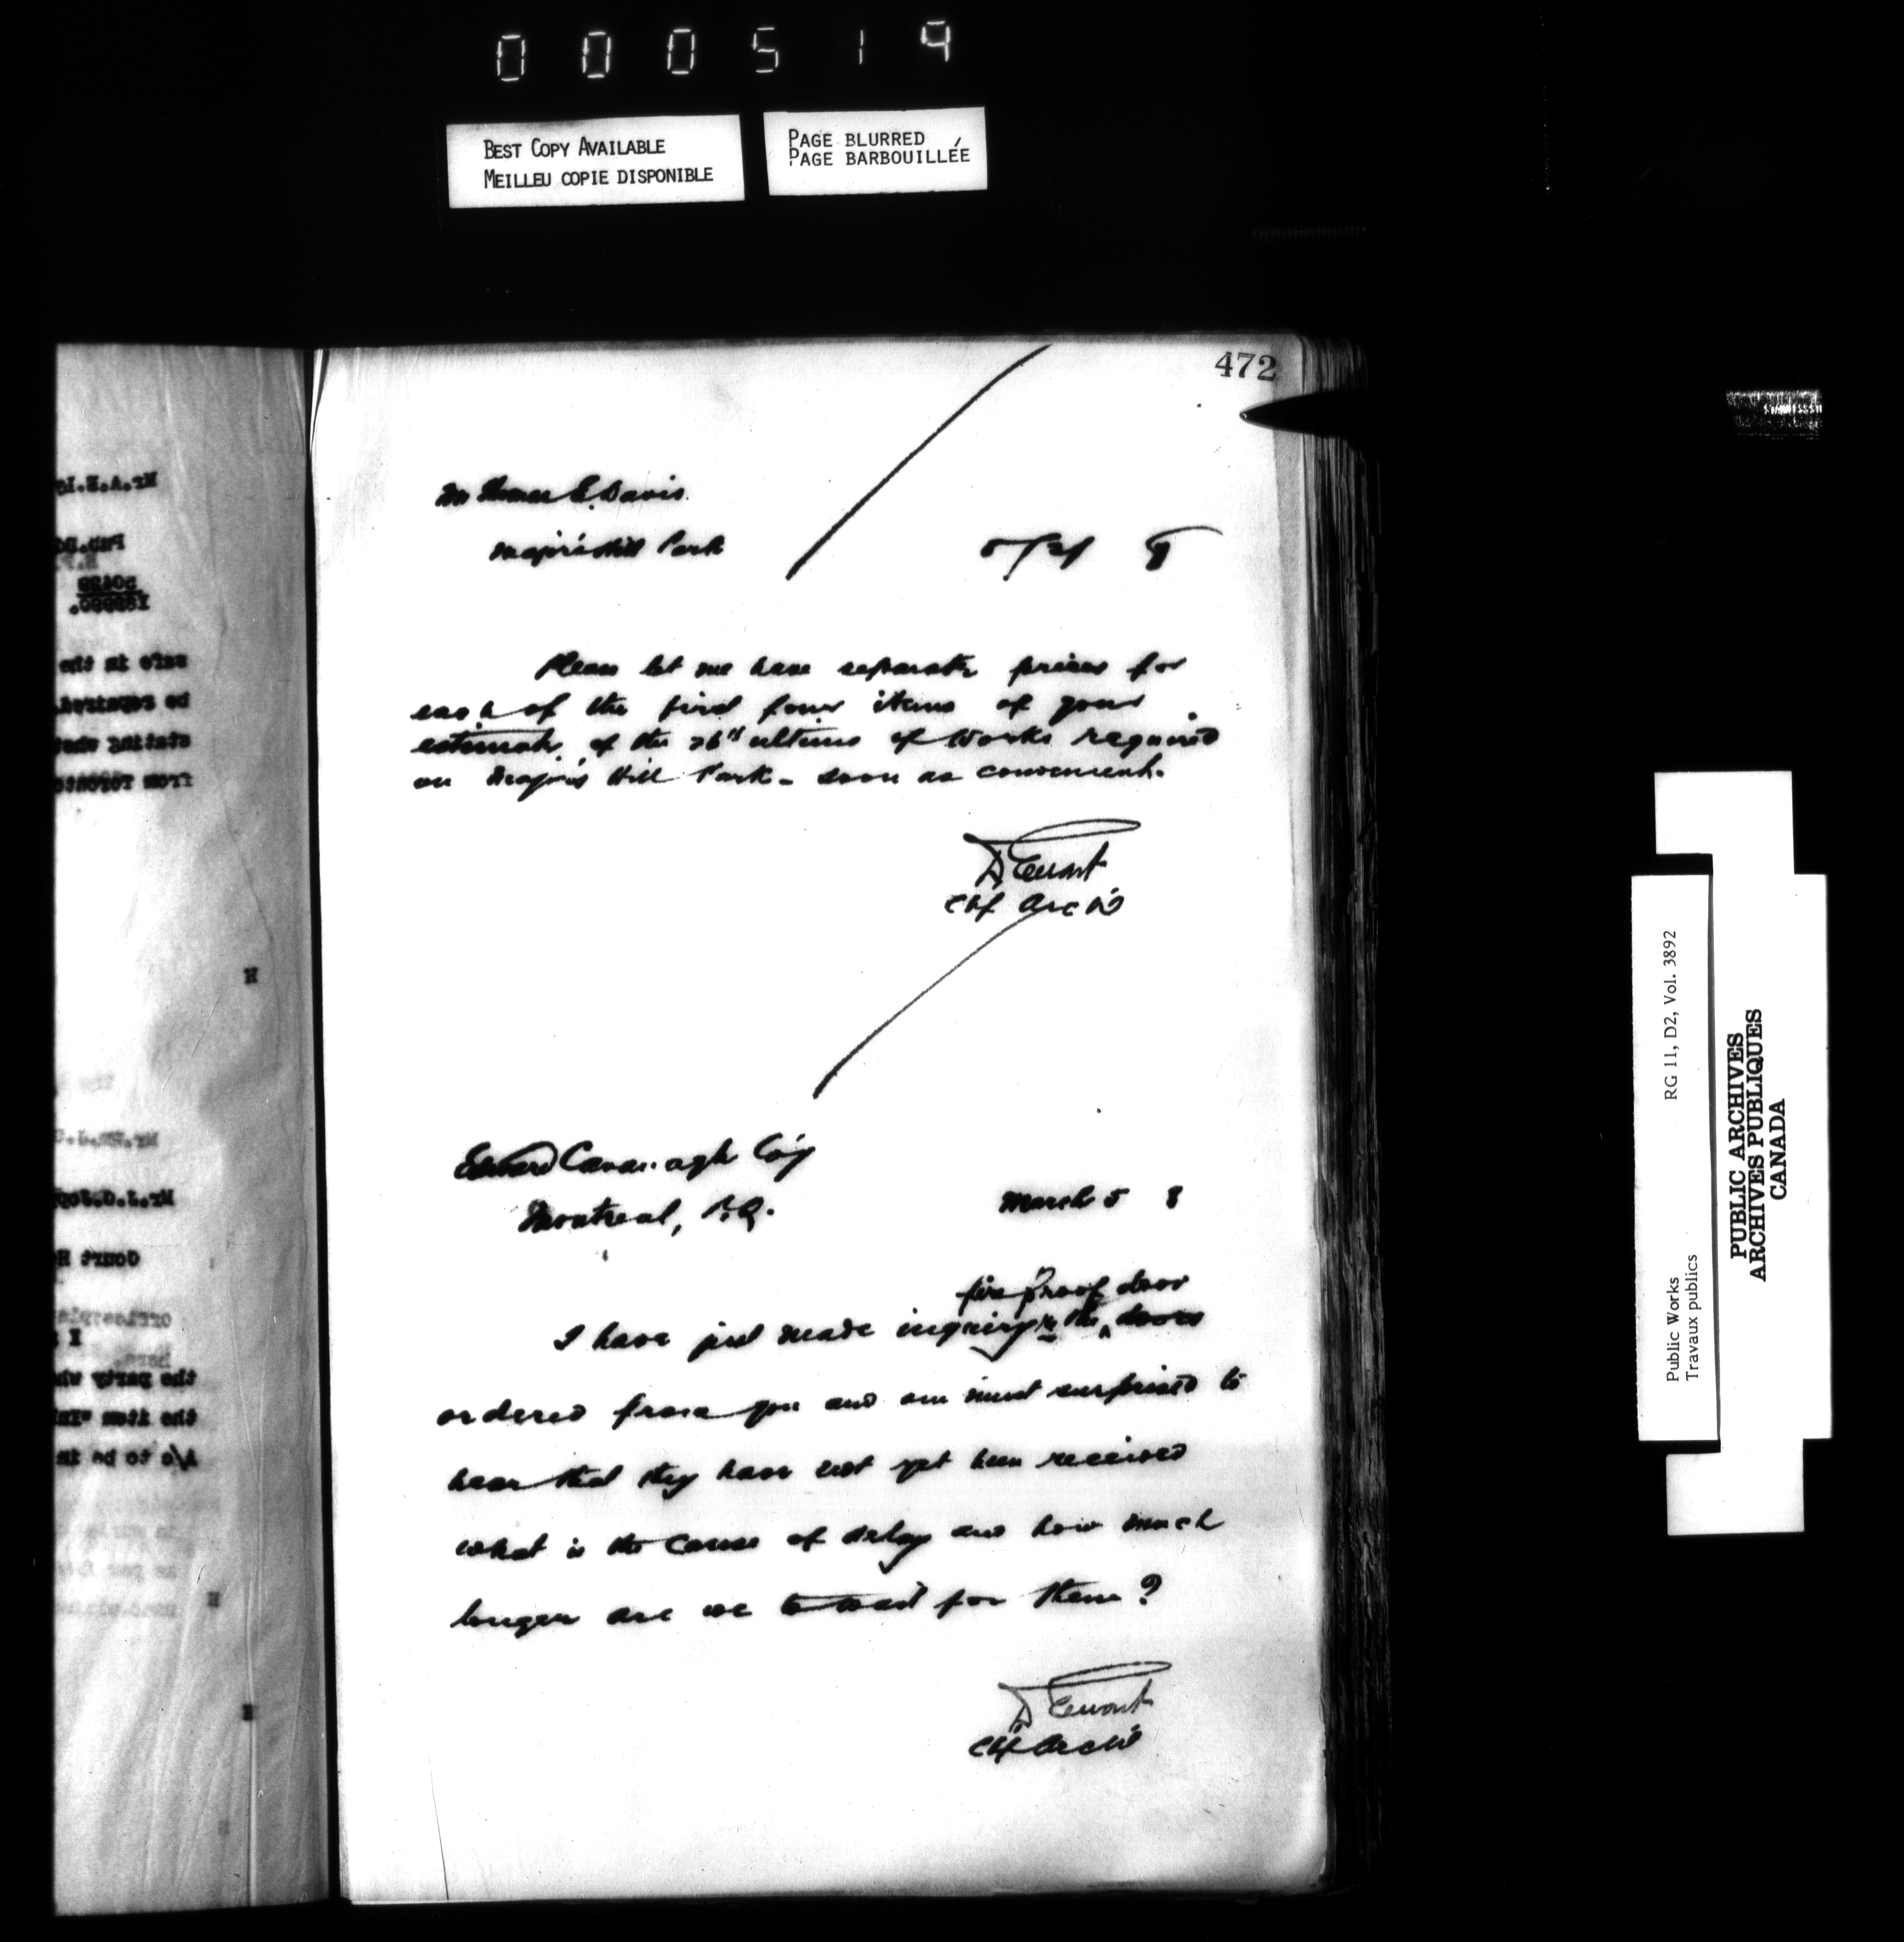 000519
BEST COPY AVAILABLE
MEILLEU COPIE DISPONIBLE
PAGE BLURRED
PAGE BARBOUILLÉE
472
Mr Thomas E. Davis
Major's Hill Park
8
Please let me have separate prices for
each of the first four items of your
estimate of the 26th ultimo of works required
on Major's Hill Park - soon as convenient.
D Ewart
Chf Archt
Edward Cavanagh Co'y
Montreal, P.Q.
March 5 8
fire proof door
I have just made inquiry re the ^ doors
ordered from you and am must surprised to
hear that they have not yet been received
what is the cause of delay and how much
longer are we to wait for them?
D Ewart
Chf Archt
Mr.A.E.
Pub.
50429
safe in the
be repaired
stating what
from Toronto
H
Mr.J.G.
Court H
I
the party wh
the item "
A/c to be in
H
H
Public Works
Travaux publics
RG 11, D2, Vol. 3892
PUBLIC ARCHIVES
ARCHIVES PUBLIQUES
CANADA